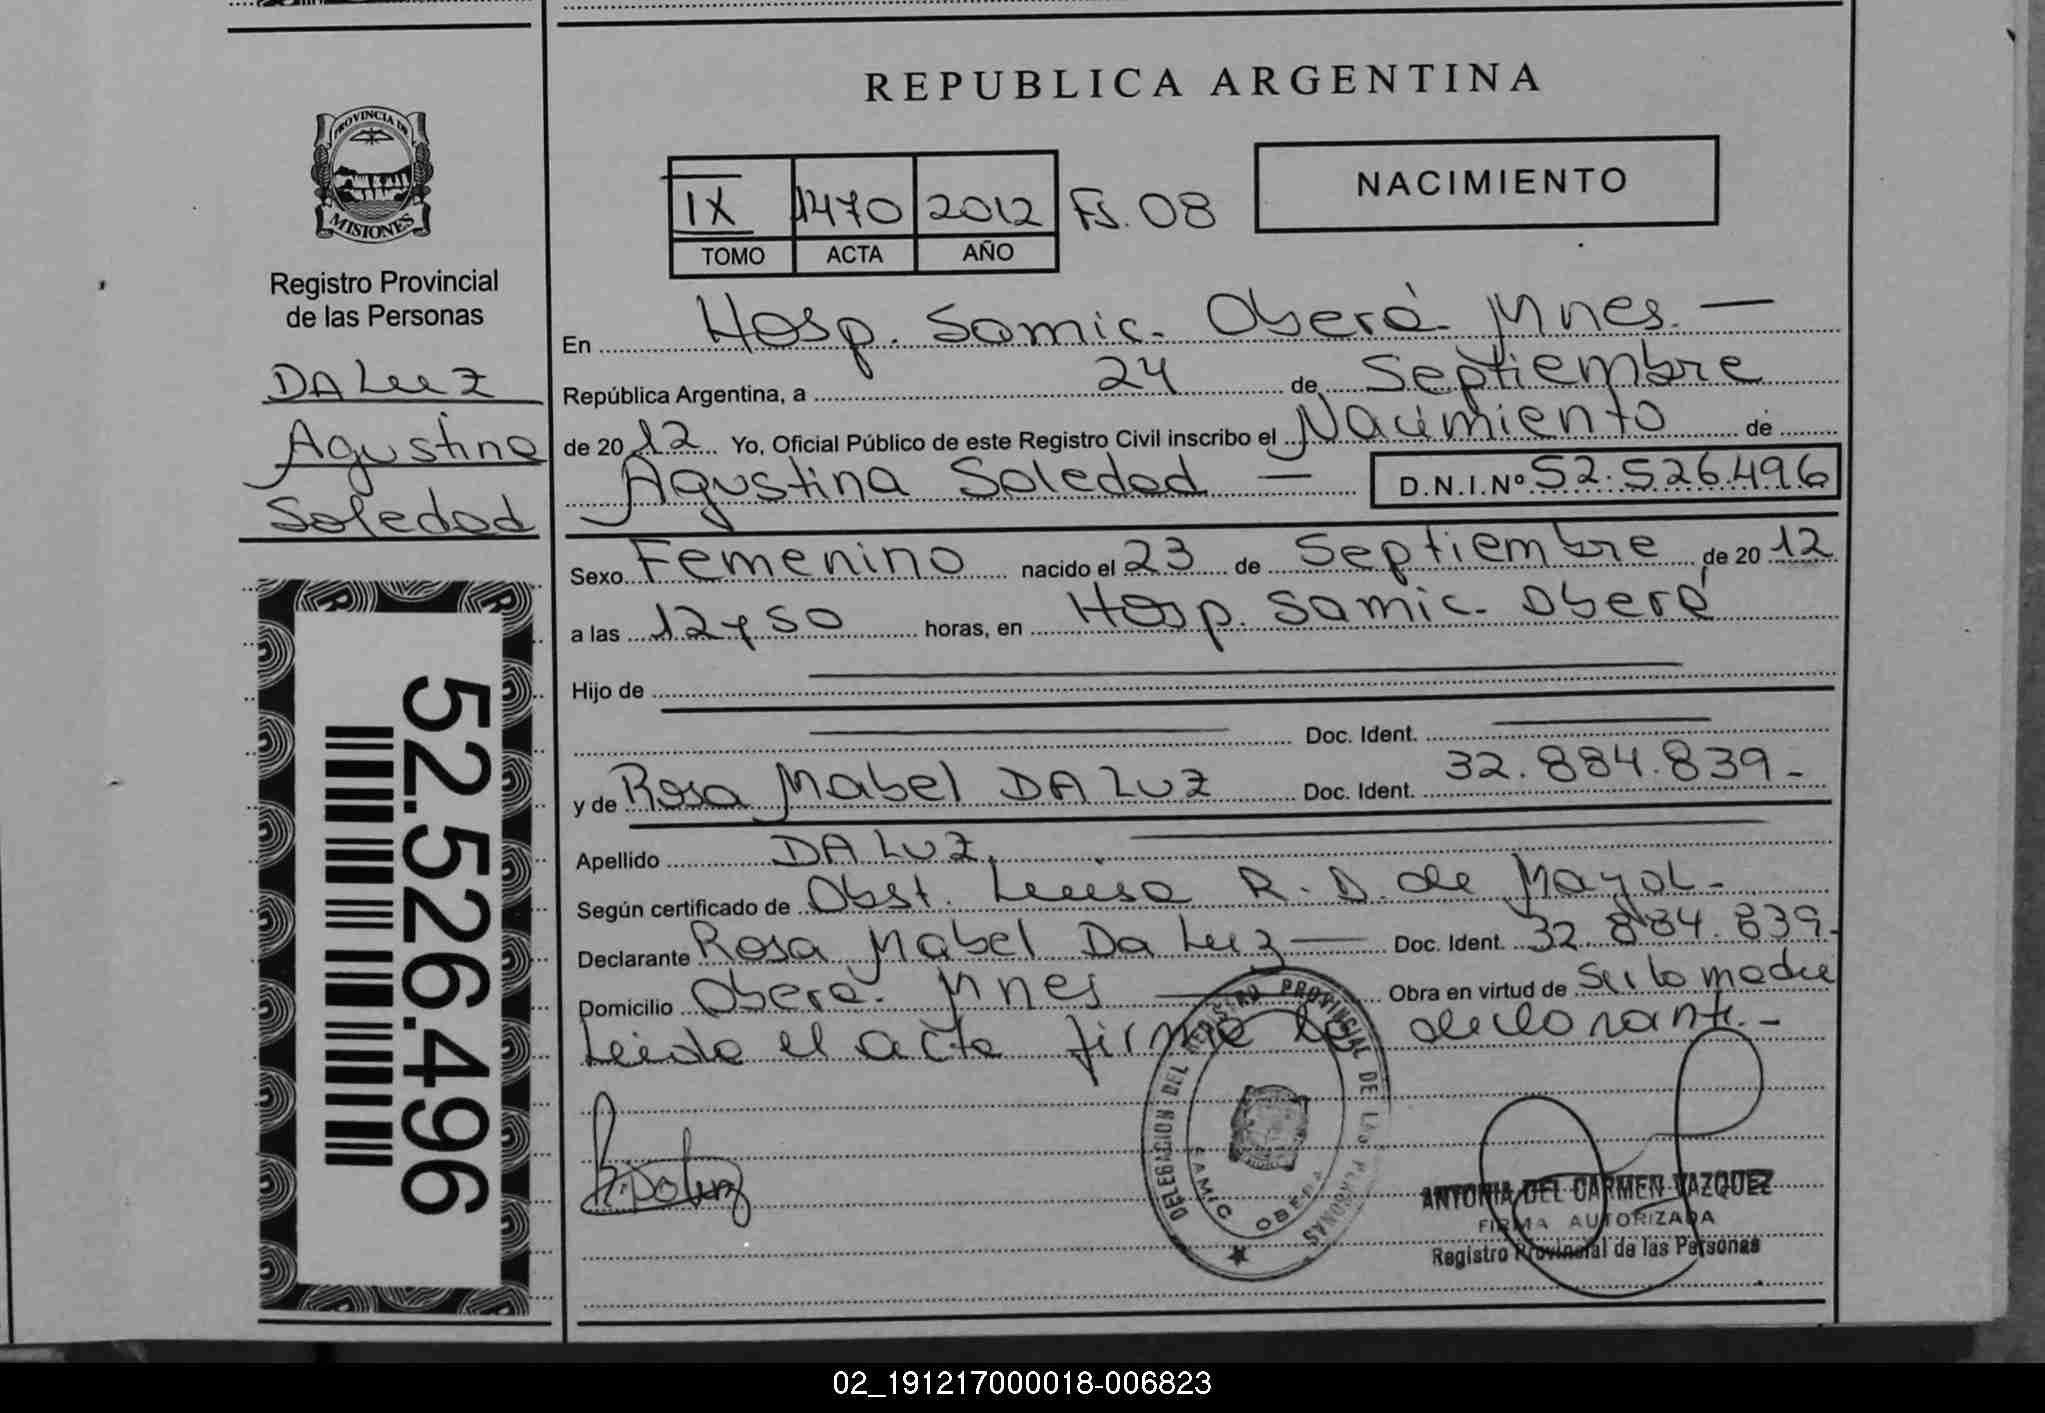 PROVINCIA DE
MISIONES
Registro Provincial
de las Personas
DA LUZ
Agustina
Soledad
52.526.496
REPUBLICA ARGENTINA
IX 1470 2012 Fs. 08
TOMO ACTA AÑO
NACIMIENTO
En Hosp. Samic. Oberá. Mnes.
República Argentina, a 24 de Septiembre
de 2012 Yo, Oficial Público de este Registro Civil inscribo el Nacimiento de
Agustina Soledad D.N.I.Nº 52.526.496
Sexo Femenino nacido el 23 de Septiembre de 2012
a las 12 y 50 horas, en Hosp. Samic. Oberá
Hijo de
Doc. Ident.
y de Rosa Mabel DA LUZ Doc. Ident. 32.884.839.-
Apellido DA LUZ.
Según certificado de Obst. Luisa R. D. de Mayol-
Declarante Rosa Mabel Da Luz Doc. Ident. 32.884.839.
Domicilio Oberá. Mnes Obra en virtud de Ser la madre
Leida el acta firma la declarante.-
DELEGACION DEL REGISTRO PROVINCIAL DE LAS PERSONAS
SAMIC OBERA
ANTONIA DEL CARMEN VAZQUEZ
FIRMA AUTORIZADA
Registro Provincial de las Personas
02_191217000018-006823